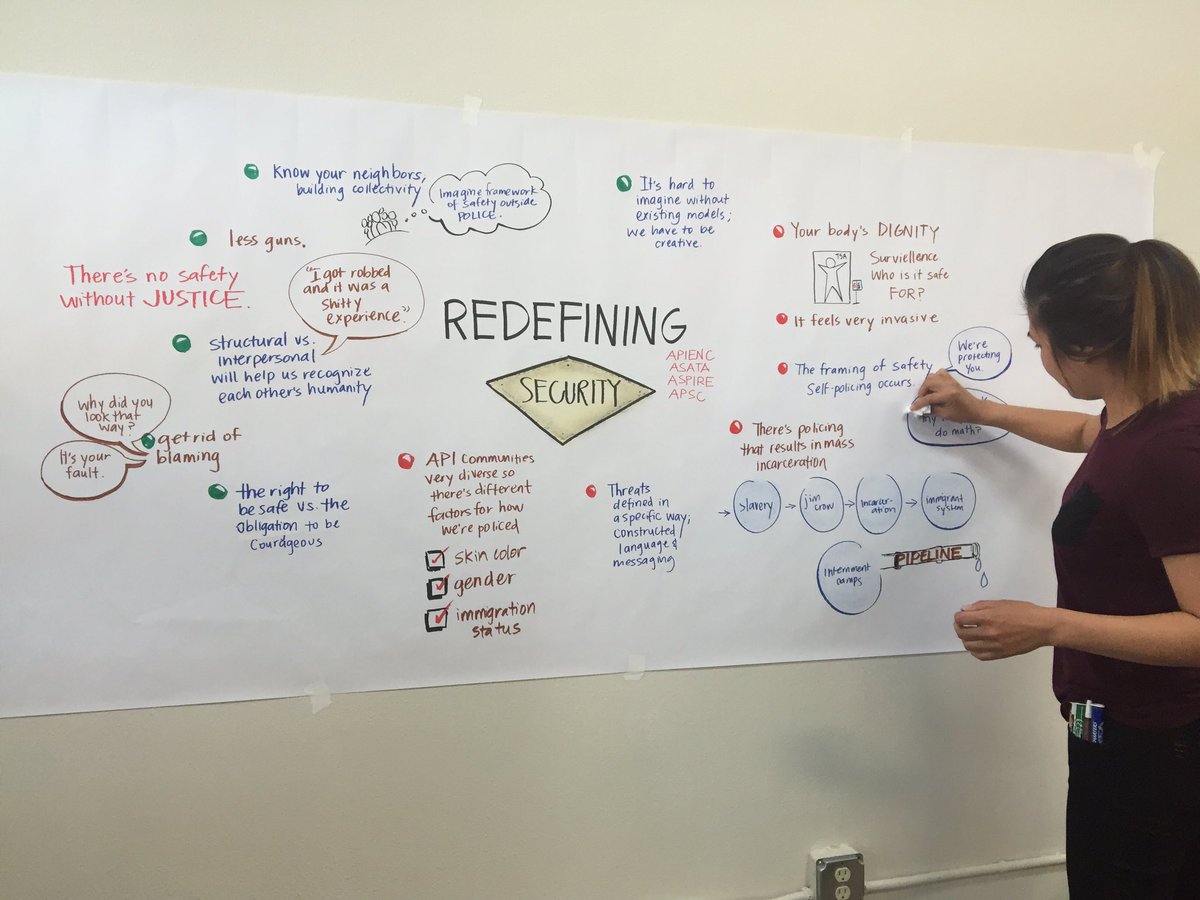 Know your neighbors,
building collectivity
Imagine framework
of safety outside
POLICE.
less guns.
There's no safety
without JUSTICE.
"I got robbed
and it was a
shitty
experience."
structural vs.
interpersonal
will help us recognize
each other's humanity
why did you
look that
way?
It's your
fault.
get rid of
blaming
the right to
be safe vs. the
obligation to be
Courdgeous
REDEFINING
SECURITY
APIENC
ASATA
ASPIRE
APSC
API Communities
very diverse so
there's different
factors for how
we're policed
skin color
gender
immigration
status
It's hard to
imagine without
existing models;
we have to be
creative.
Your body's DIGNITY
TSA
Surviellence
Who is it safe
FOR?
It feels very invasive
The framing of safety
Self-policing occurs.
We're
protecting
you.
do math?
There's policing
that results in mass
incarceration
Threats
defined in
a specific way;
constructed/
language &
messaging
slavery
jim
crow
Incarcer-
ation
immigrant
system
Internment
camps
PIPELINE